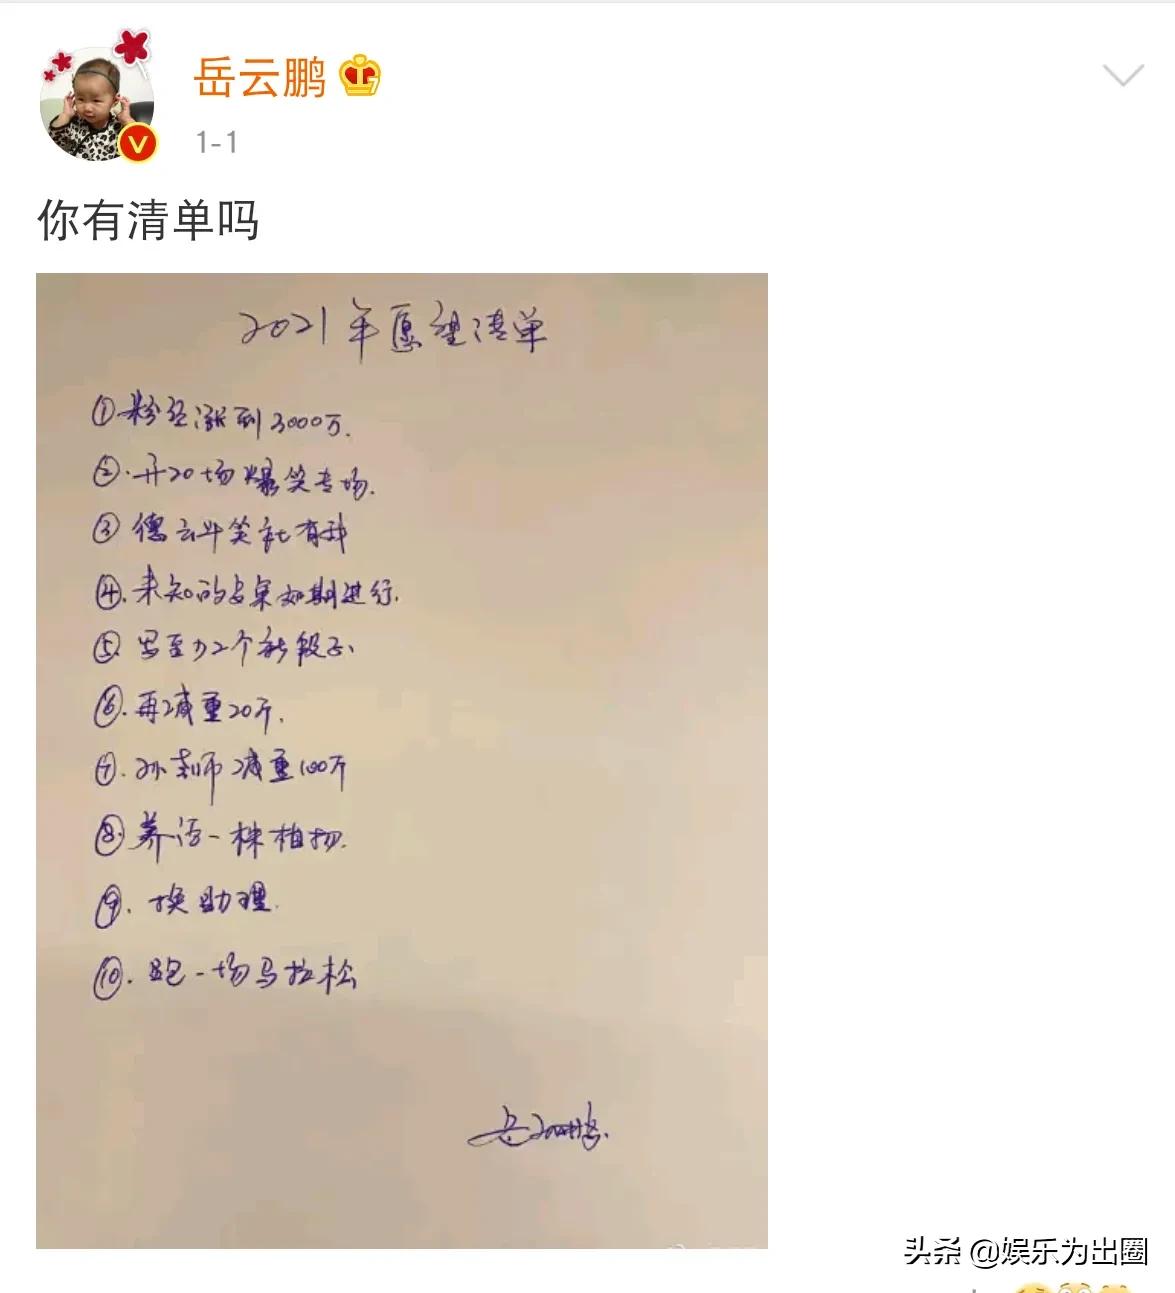 岳云鹏
1-1
你有清单吗
2021年愿望清单
①粉丝涨到3000万.
②.开20场爆笑专场.
③德云斗笑社有我
④.未知的专桌如期进行.
⑤写至少2个新段子、
⑥.再减重20斤.
⑦.孙老师减重100斤
⑧养活一株植物.
⑨.换助理.
⑩.跑一场马拉松
岳云鹏.
头条 @娱乐为出圈